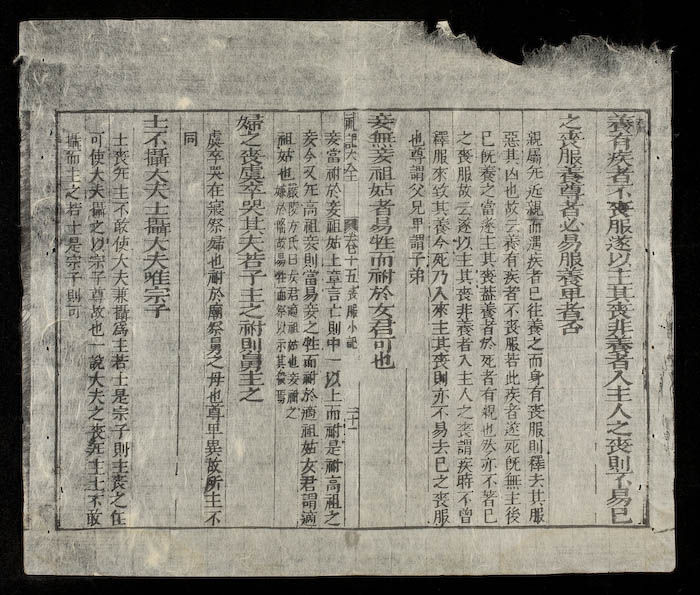 養有疾者不喪服遂以主其喪非養者入主人之喪則不易己
之喪服養尊者必易服養卑者否
親屬死近親而遇疾者己往養之而身有喪服則釋去其服
惡其凶也故云養有疾者不喪服若此疾者遂死旣無主後
己旣養之當遂主其喪葢養者於死者有親也然亦不著己
之喪服故云遂以主其喪非養者入主人之喪謂疾時不曾
釋服來致其養今死乃入來主其喪則亦不易去己之喪服
也尊謂父兄卑謂子弟
妾無妾祖姑者易牲而祔於女君可也
禮記大全 卷十五 喪服小記
妾當祔於妾祖姑上章言亡則中一以上而祔是祔高祖之
妾今又死高祖妾則當易妾之牲而祔於適祖姑女君謂適
祖姑也
婦之喪虞卒哭其夫若子主之祔則舅主之
虞卒哭在寢祭婦也祔於廟祭舅之母也尊卑異故所主不
同
士不攝大夫士攝大夫唯宗子
士喪无主不敢使大夫兼攝爲主若士是宗子則主喪之任
可使大夫攝之以宗子尊故也一說大夫之喪无主士不敢
攝而主之若士是宗子則可